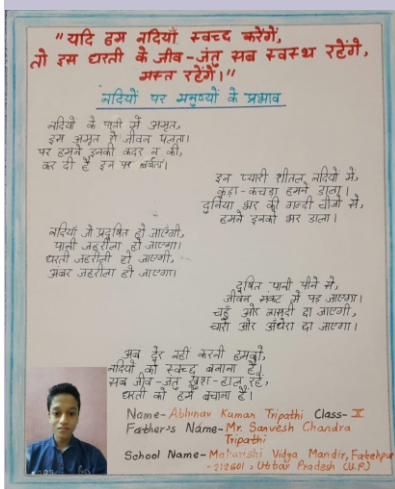 "यदि हम नदियाँ स्वच्छ करेंगे,
तो इस धरती के जीव-जंतु सब स्वस्थ रहेंगे,
मस्त रहेंगे।"
नदियों पर मनुष्यों के प्रभाव
नदियों के पानी में अमृत,
इस अमृत से जीवन पलता।
पर हमने इनकी कदर न की,
कर दी है इन पर बर्बरता।
इन प्यारी शीतल नदियों में,
कूड़ा-कचड़ा हमने डाला।
दुनिया भर की गन्दी चीजों से,
हमने इनको भर डाला।
नदियाँ जो प्रदूषित हो जाएंगी,
पानी जहरीला हो जाएगा।
धरती जहरीली हो जाएगी,
अंबर जहरीला हो जाएगा।
दूषित पानी पीने से,
जीवन संकट में पड़ जाएगा।
चहुँ ओर त्रासदी छा जाएगी,
चारों ओर अँधेरा छा जाएगा।
अब देर नहीं करनी हमको,
नदियों को स्वच्छ बनाना है।
सब जीव-जंतु खुश-हाल रहें,
धरती को हमें बचाना है।
Name- Abhinav Kumar Tripathi Class- X
Father's Name- Mr. Sarvesh Chandra
Tripathi
School Name- Maharshi Vidya Mandir, Fatehpur
-212601, Uttar Pradesh (U.P.)